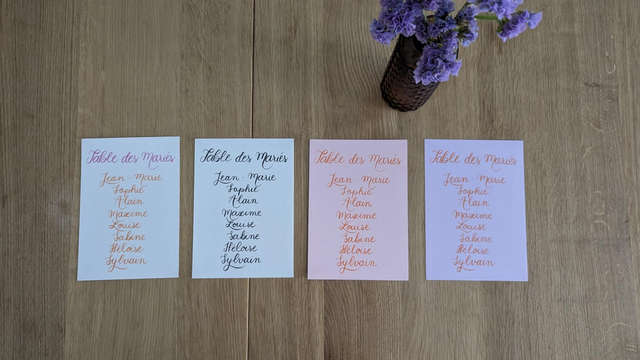 Table des Mariés
Jean-Marie
Sophie
Alain
Maxime
Louise
Sabine
Héloïse
Sylvain
Table des Mariés
Jean-Marie
Sophie
Alain
Maxime
Louise
Sabine
Héloïse
Sylvain
Table des Mariés
Jean-Marie
Sophie
Alain
Maxime
Louise
Sabine
Héloïse
Sylvain
Table des Mariés
Jean-Marie
Sophie
Alain
Maxime
Louise
Sabine
Héloïse
Sylvain